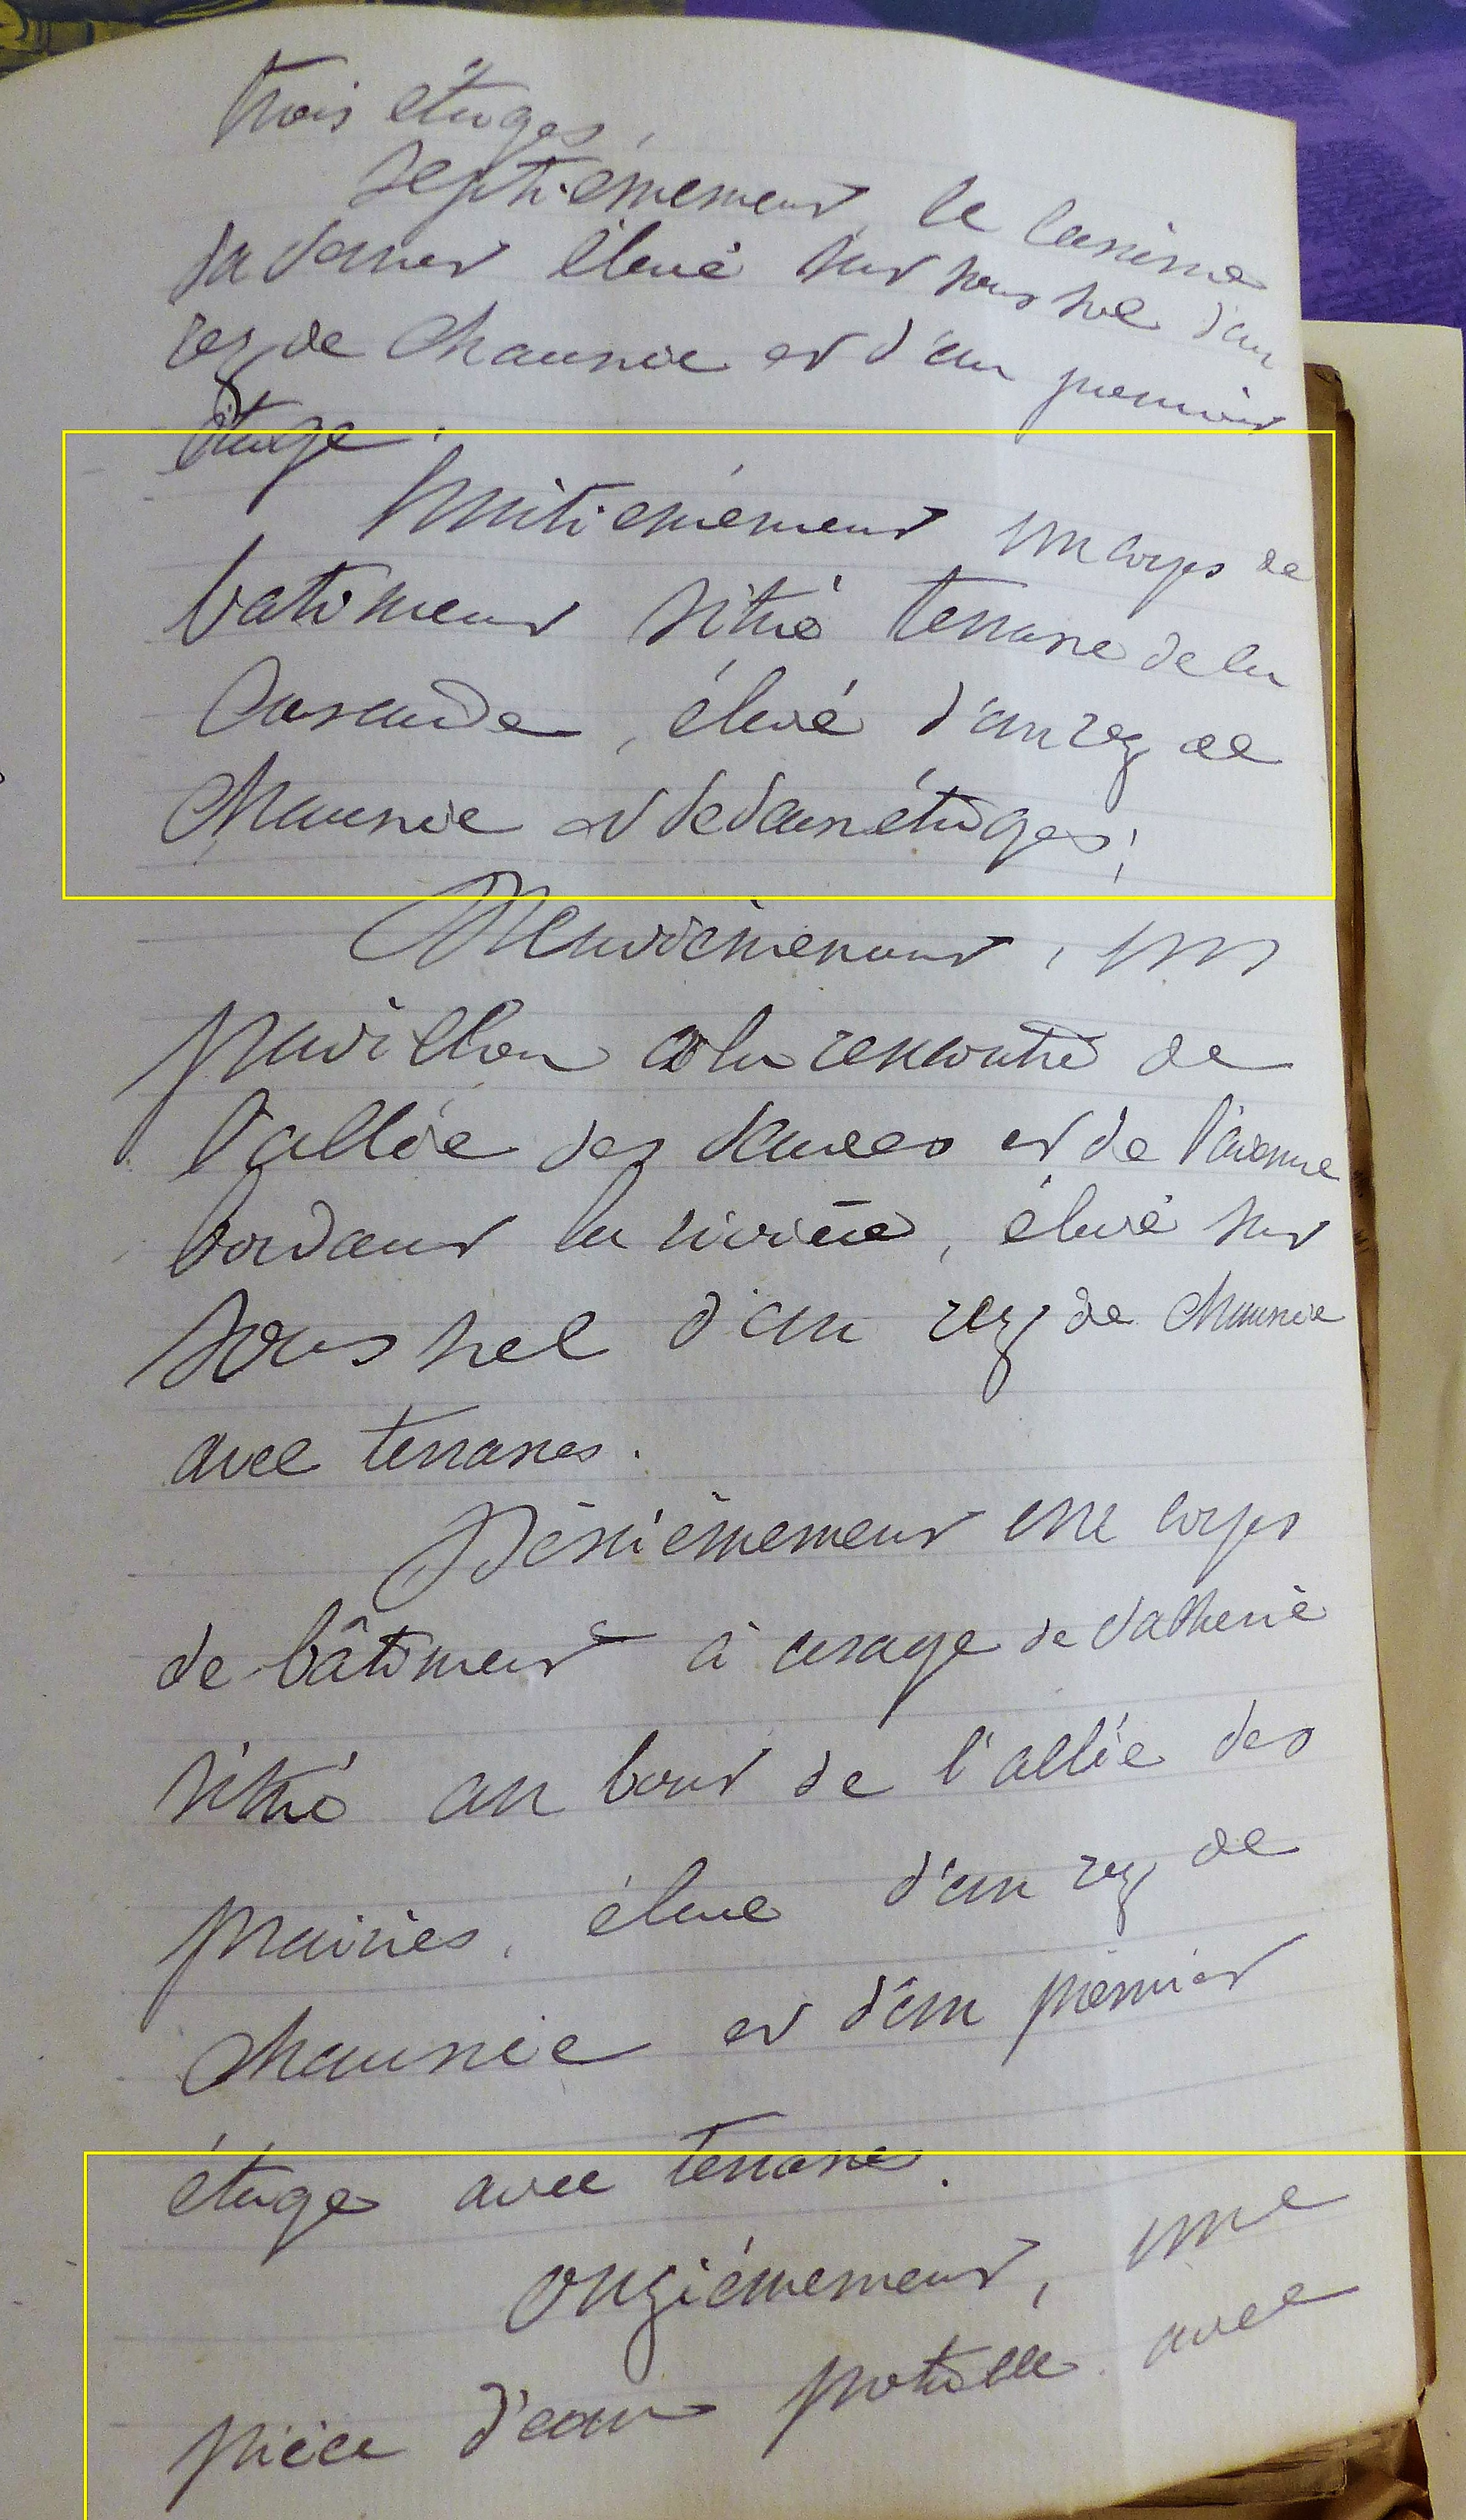 trois étages,
Septièmement, le casino
sa dener élevé sur sous sol d'un
rez de chaussée et d'un premier
étage.
Huitièmement un corps de
batiment situé terrasse de la
Cascade, élevé d'un rez de
chaussée et de deux étages;
Neuvièmement, un
pavillon à la rencontre de
l'allée des Dames et de l'avenue
bordant la rivière, élevé sur
sous sol d'un rez de chaussée
avec terrasses.
Dixièmement un corps
de bâtiment à usage de vacherie
situé au bout de l'allée des
prairies, élevé d'un rez de
chaussée et d'un premier
étage avec terrasse.
Onzièmement, une
pièce d'eau potable avec